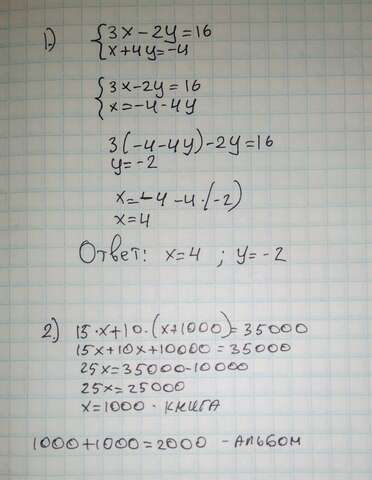 1.) {3x-2y=16
{x+4y=-4
{3x-2y=16
{x=-4-4y
3(-4-4y)-2y=16
y=-2
x=-4-4·(-2)
x=4
Ответ: x=4 ; y=-2
2.) 15·x+10·(x+1000)=35000
15x+10x+10000=35000
25x=35000-10000
25x=25000
x=1000 · КНИГА
1000+1000=2000 - АЛЬБОМ